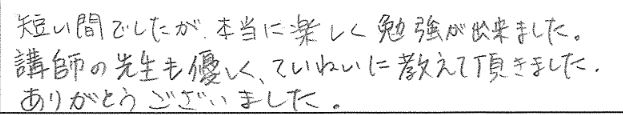 短い間でしたが、本当に楽しく勉強が出来ました。
講師の先生も優しく、ていねいに教えて頂きました.
ありがとうございました。